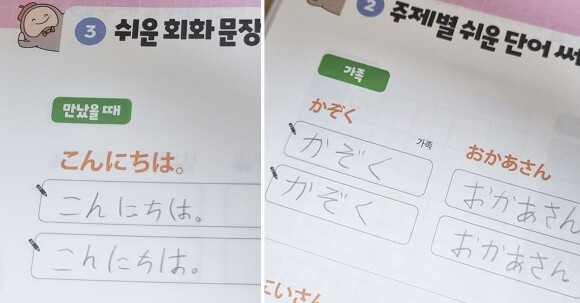 3 쉬운 회화 문장
만났을 때
こんにちは。
こんにちは。
こんにちは。
2 주제별 쉬운 단어 써
가족
かぞく
가족
かぞく
かぞく
おかあさん
おかあさん
おかあさん
にいさん